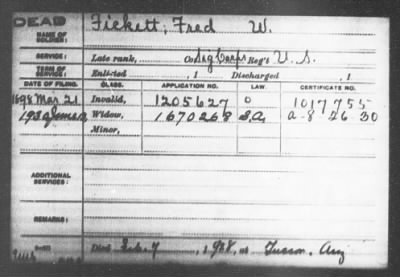 DEAD
Fickett, Fred W.
NAME OF SOLDIER:
SERVICE: Late rank, Co Sig Corps, Reg't U. S.
TERM OF SERVICE: Enlisted , 1 Discharged , 1
DATE OF FILING. CLASS. APPLICATION NO. LAW. CERTIFICATE NO.
1898 Mar 21 Invalid, 1205627 O 1017755
1930 Widow, 1670268 S.A. a-8-26-30
Minor,
ADDITIONAL SERVICES:
REMARKS:
Died Feb. 7, 1928, at Tucson, Ariz